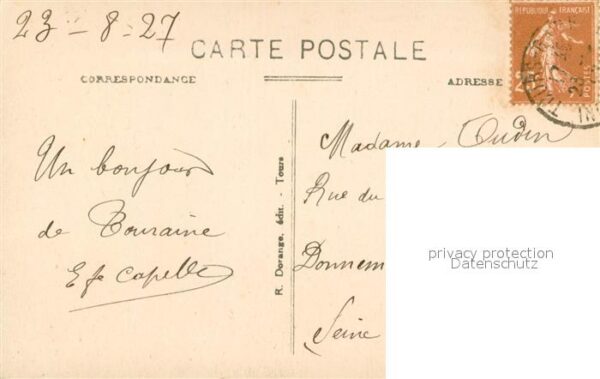 23 - 8 - 27
CARTE POSTALE
CORRESPONDANCE
ADRESSE
RÉPUBLIQUE FRANÇAISE
Un bonjour
de Touraine
Capelle
R. Dorange, édit. - Tours
Madame Oudin
Rue du
Donnem
Seine
privacy protection
Datenschutz